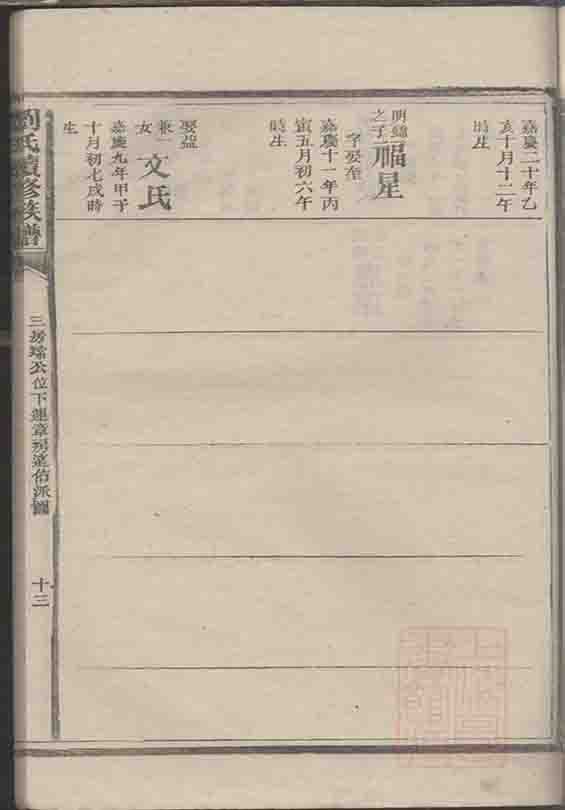 嘉慶二十年乙
亥十月十二午
時生
明緯
之子
福星
字安至
嘉慶十一年丙
寅五月初六午
時生
娶益
文氏
女
嘉慶九年甲子
十月初七戌時
生
劉氏續修族譜
三房
公位下
章房
伯派圖
十三